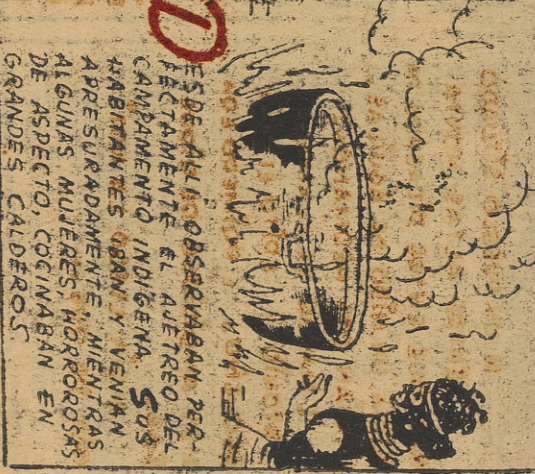 DESDE ALLI OBSERVABAN PER-
FECTAMENTE EL AJETREO DEL
CAMPAMENTO INDÍGENA. SUS
HABITANTES IBAN Y VENIAN
APRESURADAMENTE, MIENTRAS
ALGUNAS MUJERES, HORROROSAS
DE ASPECTO, COCINABAN EN
GRANDES CALDEROS